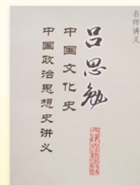 名师讲义
吕思勉
中国文化史
中国政治思想史讲义